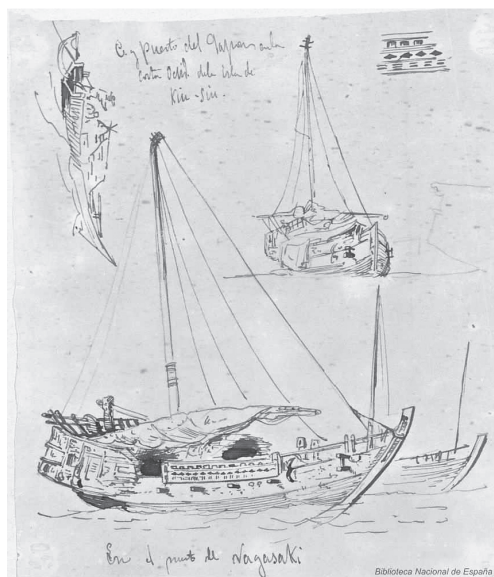 puerto del Japon en la
costa de la isla de
Kiu-Siu.
En el puerto de Nagasaki
Biblioteca Nacional de España